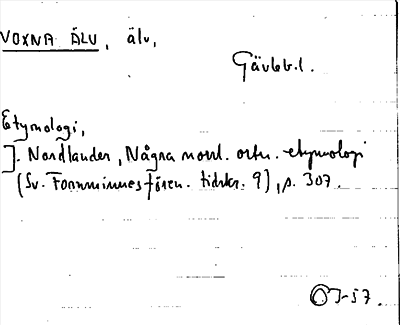 VOXNA ÄLV, älv,
Gävleb.l.
Etymologi,
J. Nordlander, Några norrl. ortn. etymologi
(Sv. Fornminnesfören. tidskr. 9), s. 307.
OJ-57.